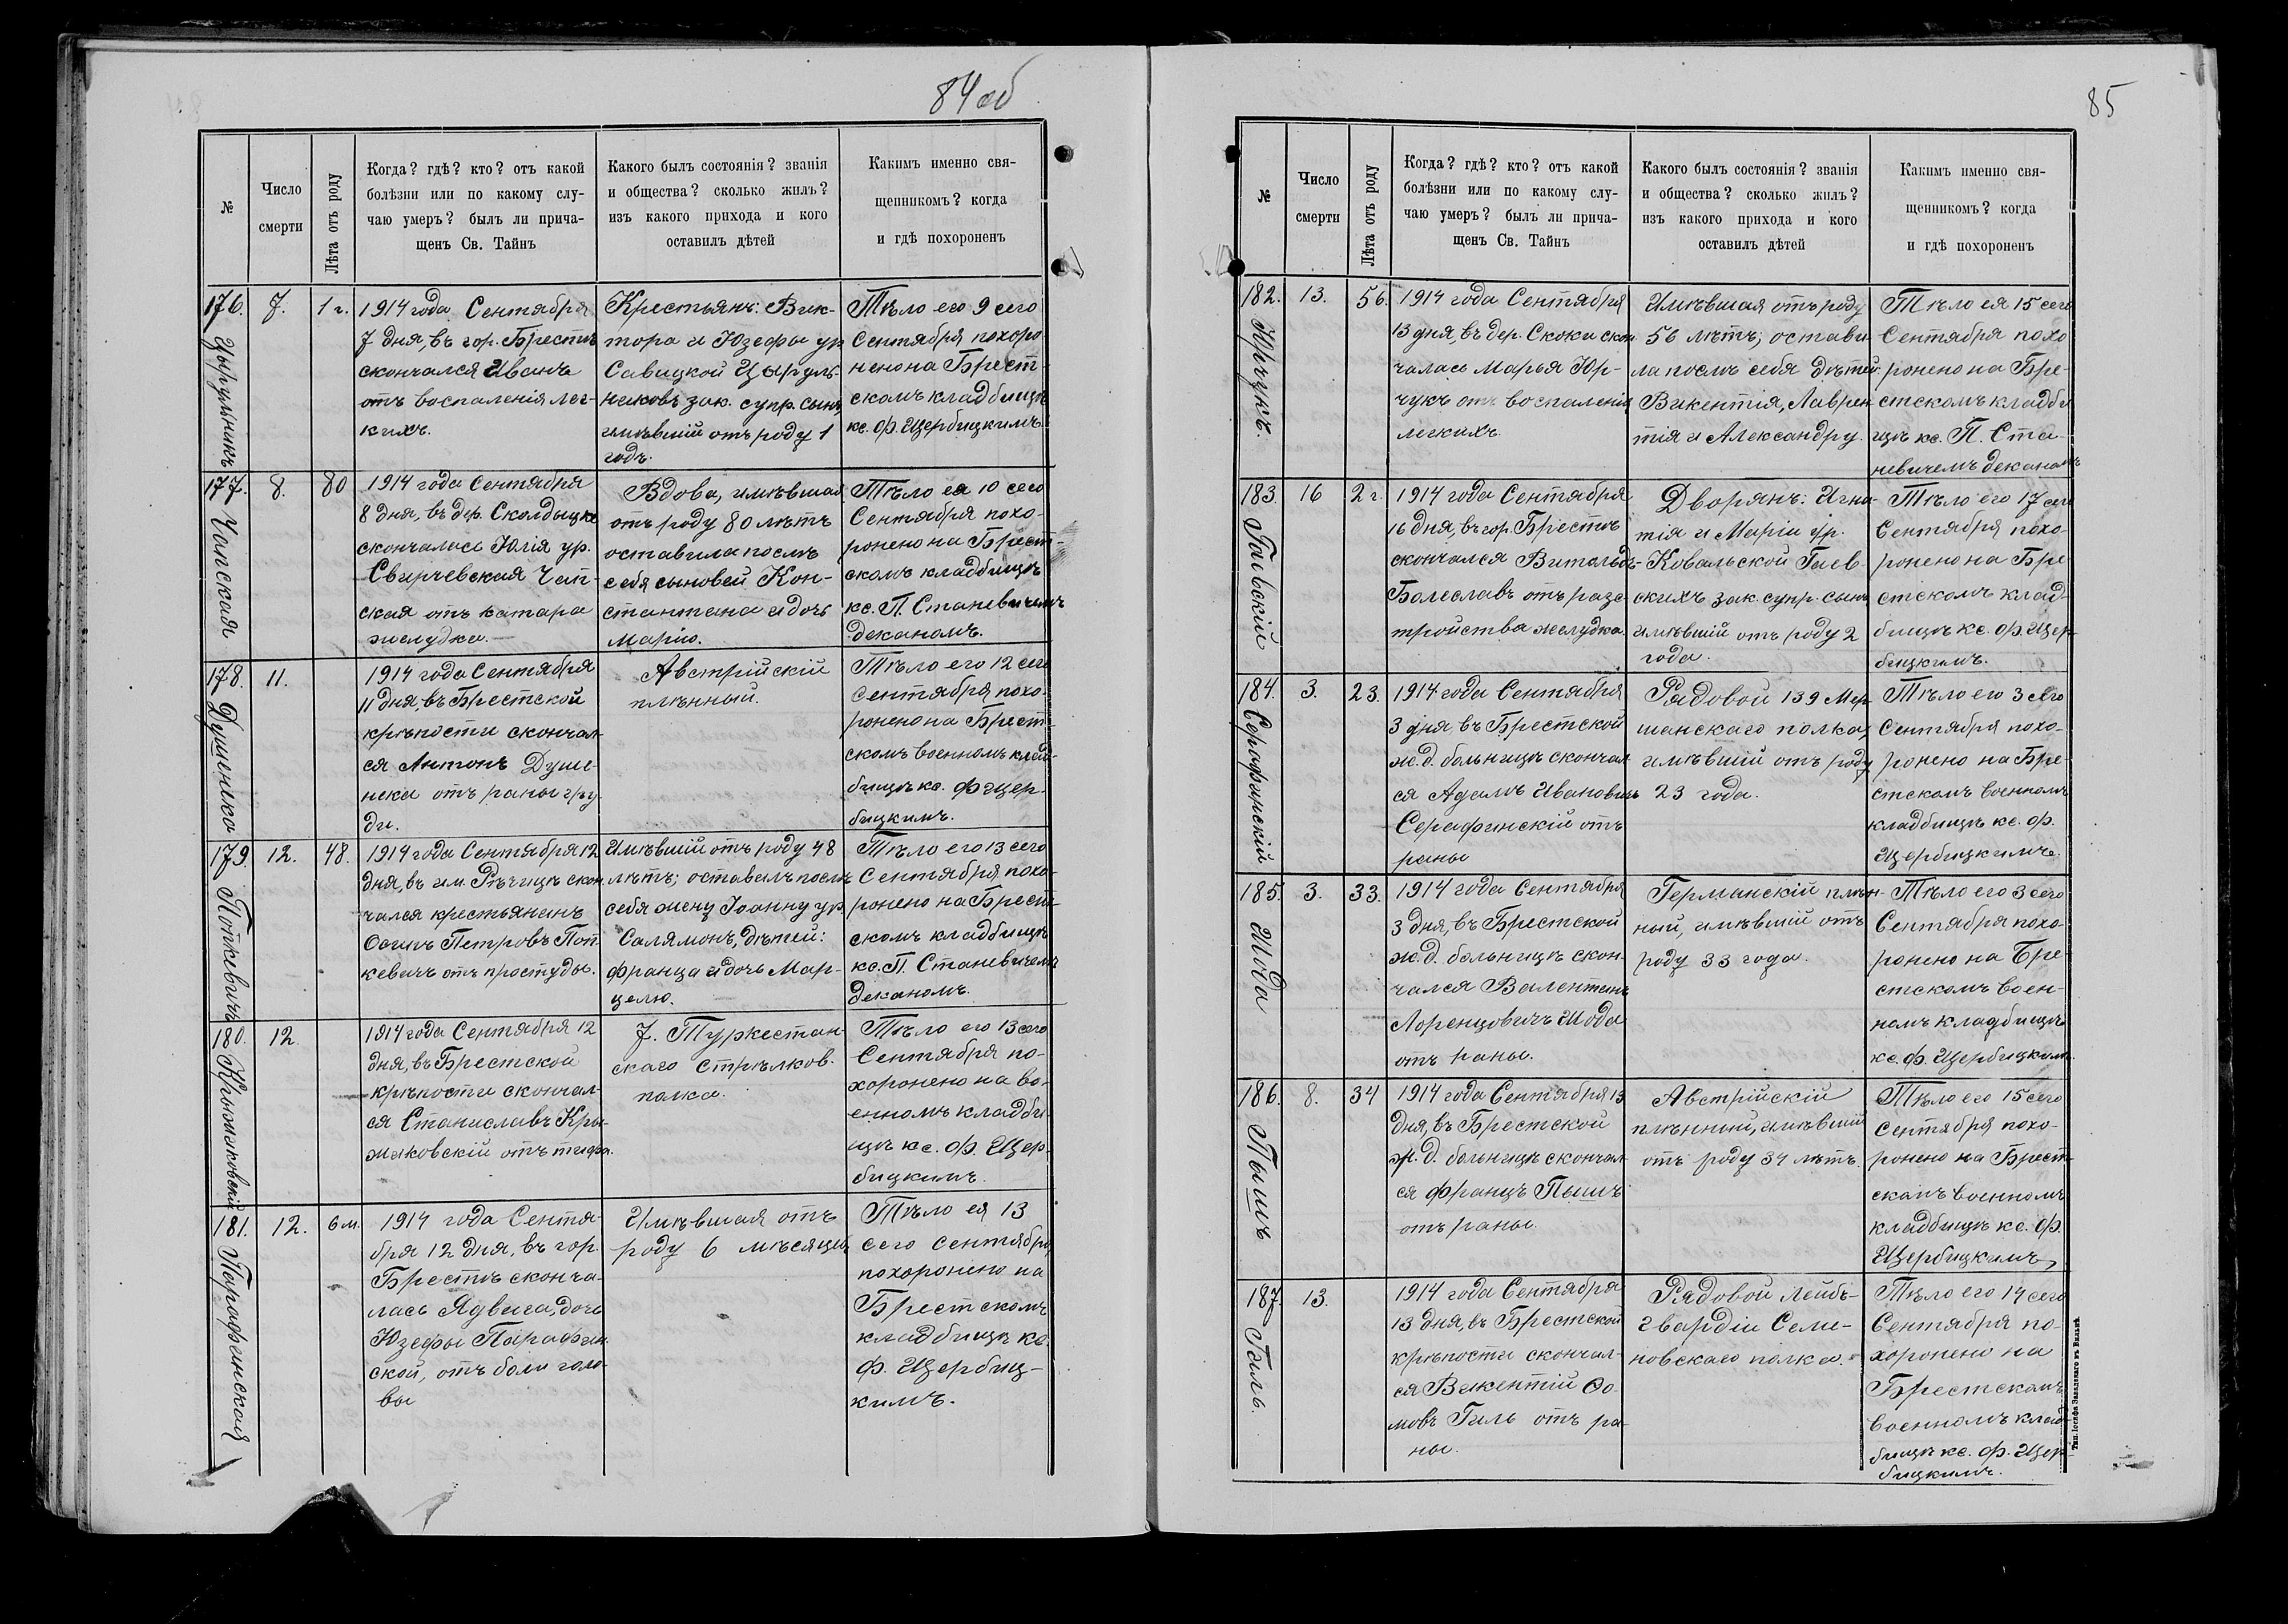 84 об
№
Число
смерти
Лѣта отъ роду
Когда? гдѣ? кто? отъ какой
болѣзни или по какому слу-
чаю умеръ? былъ ли прича-
щенъ Св. Тайнъ
Какого былъ состоянія? званія
и общества? сколько жилъ?
изъ какого прихода и кого
оставилъ дѣтей
Какимъ именно свя-
щенникомъ? когда
и гдѣ похороненъ
176.
Цырульникъ
7.
1 г.
1914 года Сентября
7 дня, въ гор. Брестѣ
скончался Иванъ
отъ воспаленія лег-
кихъ.
Крестьянъ: Вик-
тора и Юзефы ур
Савицкой Цируль-
никовъ зак. супр. сынъ,
имѣвшій отъ роду 1
годъ.
Тѣло его 9 сего
Сентября похоро
нено на Брест-
скомъ кладбищѣ
кс. Ф. Щербицкимъ.
177.
Чапская
8.
80
1914 года Сентября
8 дня, въ дер. Сколдычѣ
скончалась Юлія ур.
Свирчевская Чап-
ская отъ катара
желудка.
Вдова, имѣвшая
отъ роду 80 лѣтъ
оставила послѣ
себя сыновей Кон-
стантина и дочь
Марію.
Тѣло ея 10 сего
Сентября похо-
ронено на Брест-
скомъ кладбищѣ
кс. П. Станевичемъ
деканомъ.
178.
Душенько
11.
1914 года Сентября
11 дня, въ Брестской
крѣпости скончал-
ся Антонъ Душе-
нека отъ раны гру-
ди.
Австрійскій
плѣнный.
Тѣло его 12 сего
Сентября похо-
ронено на Брест-
скомъ военномъ клад-
бищѣ кс. Ф Щер-
бицкимъ.
179.
Попкевичъ
12.
48.
1914 года Сентября 12
дня, въ им. Рѣчицѣ скон-
чался крестьянинъ
Осипъ Петровъ Поп
кевичъ отъ простуды.
Имѣвшій отъ роду 48
лѣтъ; оставилъ послѣ
себя жену Іоанну ур.
Салямонъ, дѣтей:
Франца и дочь Мар-
целю.
Тѣло его 13 сего
Сентября похо-
ронено на Брест-
скомъ кладбищѣ
кс. П. Станевичемъ
деканомъ.
180.
Крыжяковскій
12.
1914 года Сентября 12
дня, въ Брестской
крѣпости скончал-
ся Станиславъ Кры-
жяковскій отъ тифа.
7. Туркестан-
скаго стрѣлков.
полка.
Тѣло его 13 сего
Сентября по-
хоронено на во-
енномъ кладби-
щѣ кс. Ф. Щер-
бицкимъ.
181.
Парафинская
12.
6 м.
1914 года Сентя-
бря 12 дня, въ гор.
Брестѣ сконча-
лась Ядвига, дочь
Юзефы Парафин-
ской, отъ боли голо-
вы
Имѣвшая отъ
роду 6 мѣсяцевъ
Тѣло ея 13
сего Сентября
похоронено на
Брестскомъ
кладбищѣ кс.
Ф. Щербиц-
кимъ.
85
№
Число
смерти
Лѣта отъ роду
Когда? гдѣ? кто? отъ какой
болѣзни или по какому слу-
чаю умеръ? былъ ли прича-
щенъ Св. Тайнъ
Какого былъ состоянія? званія
и общества? сколько жилъ?
изъ какого прихода и кого
оставилъ дѣтей
Какимъ именно свя-
щенникомъ? когда
и гдѣ похороненъ
182.
13.
56.
1914 года Сентября
13 дня, въ дер. Скоки скон-
чалась Марья Юр-
чукъ отъ воспаленія
легкихъ.
Имѣвшая отъ роду
56 лѣтъ; остави-
ла послѣ себя дѣтей:
Викентія, Лаврен
тія и Александру.
Тѣло ея 15 сего
Сентября похо
ронено на Бре-
стскомъ кладби
щѣ кс. П. Ста-
невичемъ деканомъ
183.
Гаевскій
16
2 г.
1914 года Сентября
16 дня, въ гор. Брестѣ
скончался Витольдъ-
Болеславъ отъ разс-
тройства желудка.
Дворянъ: Игна-
тія и Маріи ур.
Ковальской Гаев-
скихъ зак. супр. сынъ
имѣвшій отъ роду 2
года.
Тѣло его 17 сего
Сентября похо-
ронено на Бре-
стскомъ клад-
бищѣ кс. Ф. Щер-
бицкимъ.
184.
Серафинскій
3.
23.
1914 года Сентября
3 дня, въ Брестской
ж. д. больницѣ скончал
ся Адамъ Ивановичъ
Серафинскій отъ
раны
Рядовой 139 Мор-
шанскаго полка,
имѣвшій отъ роду
23 года.
Тѣло его 3 сего
Сентября похо-
ронено на Бре-
стскомъ военномъ
кладбищѣ кс. Ф.
Щербицкимъ.
185.
Шода
3.
33.
1914 года Сентября
3 дня, въ Брестской
ж. д. больницѣ скон-
чался Валентинъ
Лоренцовичъ Шода
отъ раны.
Германскій плѣн-
ный, имѣвшій отъ
роду 33 года.
Тѣло его 3 сего
Сентября похо-
ронено на Бре-
стскомъ воен-
номъ кладбищѣ
кс. Ф. Щербицкимъ.
186.
Пышъ
8.
34
1914 года Сентября 13
дня, въ Брестской
ж. д. больницѣ скончал-
ся Францъ Пышъ
отъ раны.
Австрійскій
плѣнный, имѣвшій
отъ роду 34 лѣтъ.
Тѣло его 15 сего
Сентября похо-
ронено на Брест-
скомъ военномъ
кладбищѣ кс. Ф.
Щербицкимъ,
187.
Гиль.
13.
1914 года Сентября
13 дня, въ Брестской
крѣпости скончал-
ся Викентій Ѳо-
мовъ Гиль отъ ра-
ны.
Рядовой Лейбъ-
гвардіи Семе-
новскаго полка.
Тѣло его 14 сего
Сентября по-
хоронено на
Брестскомъ
военномъ клад-
бищѣ кс. Ф. Щер-
бицкимъ.
Тип. Іосифа Завадзкаго въ Вильнѣ.